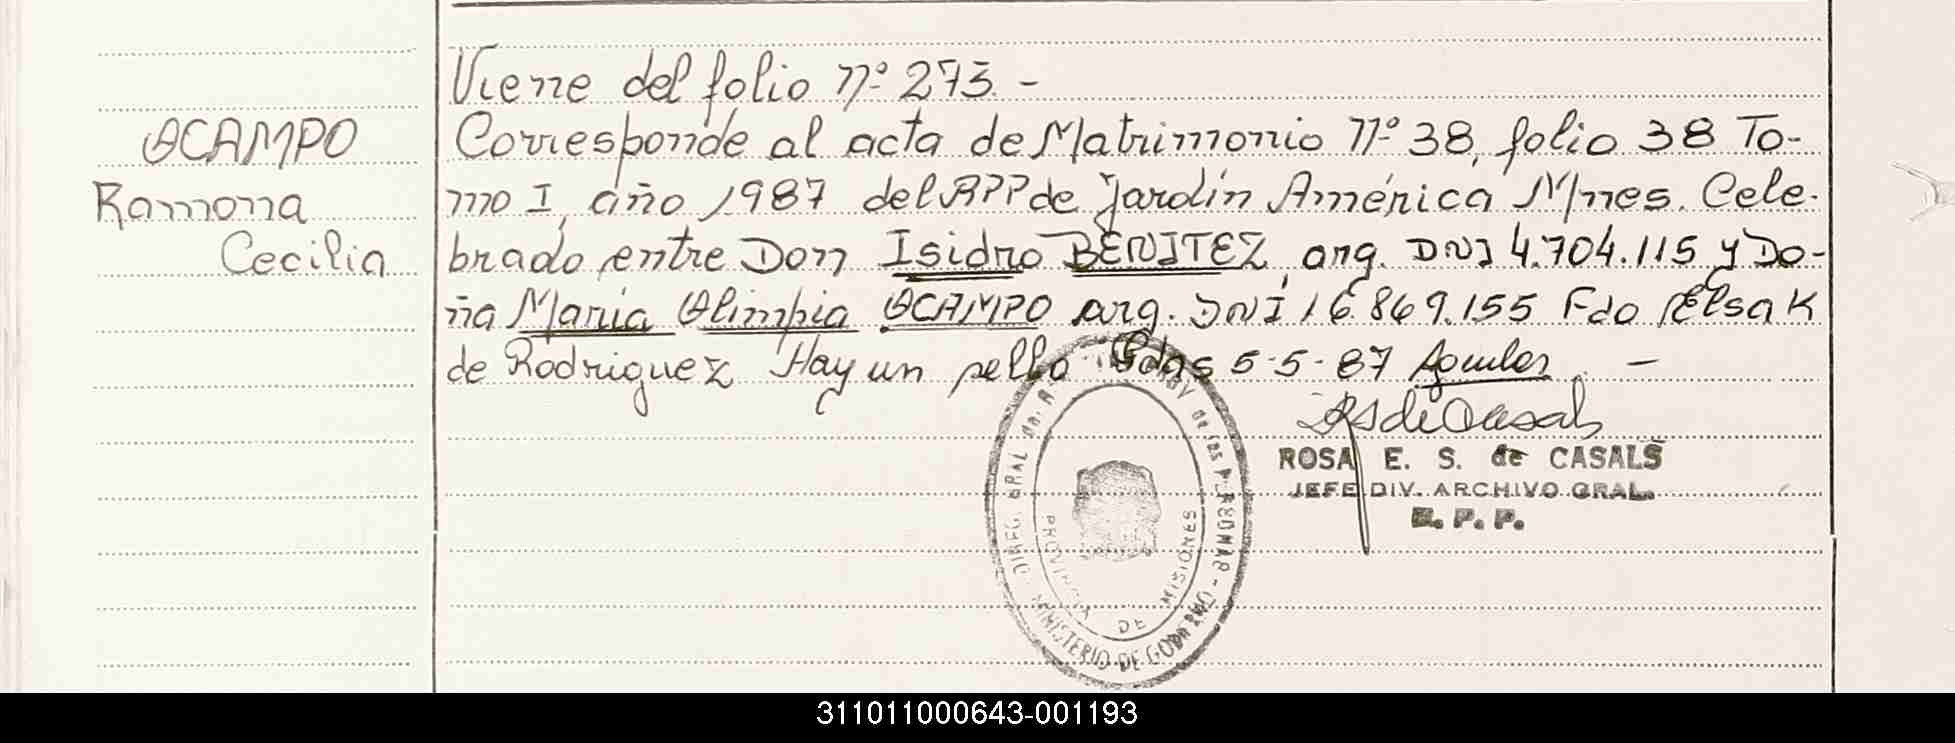 Viene del folio nº 273. -
OCAMPO
Ramona
Cecilia
Corresponde al acta de Matrimonio nº 38, folio 38 To-
mo I, año 1987 del RPP de Jardín América Mnes. Cele-
brado entre Don Isidro BENITEZ, arg. DNI 4.704.115 y Do-
ña María Olimpia OCAMPO arg. DNI 16.869.155 Fdo Elsa K
de Rodriguez Hay un sello Pdas 5-5-87 -
ROSA E. S. de CASALS
JEFE DIV. ARCHIVO GRAL.
R. P. P.
PROVINCIA DE MISIONES
MINISTERIO DE GOBIERNO
311011000643-001193